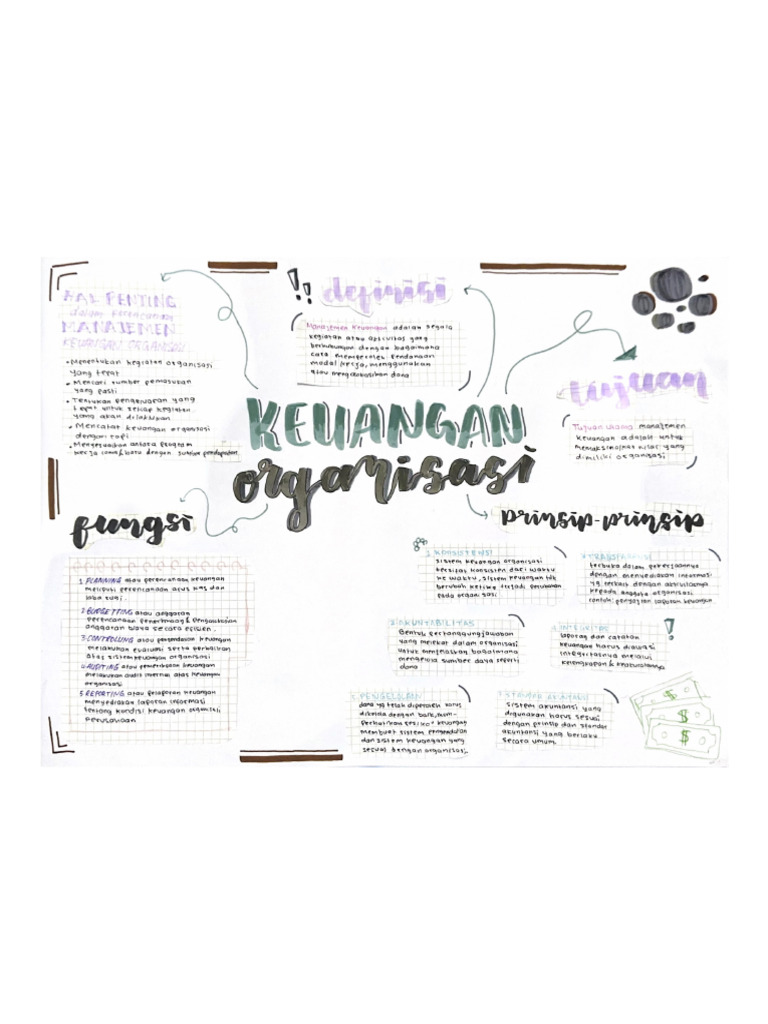 HAL PENTING
dalam Perencanaan
MANAJEMEN
KEUANGAN ORGANISASI
• Menentukan kegiatan organisasi
yang tepat
• Mencari sumber pemasukan
yang pasti
• Tentukan pengeluaran yang
tepat untuk setiap kegiatan
yang akan dilakukan
• Mencatat keuangan organisasi
dengan rapi
• Menyesuaikan antara program
kerja lama & baru dengan sumber pendapatan
!! definisi
Manajemen Keuangan adalah segala
kegiatan atau aktivitas yang
berhubungan dengan bagaimana
cara memperoleh pendanaan
modal kerja, menggunakan
atau mengalokasikan dana
tujuan
Tujuan utama manajemen
keuangan adalah untuk
memaksimalkan nilai yang
dimiliki organisasi
KEUANGAN
organisasi
fungsi
1. PLANNING atau perencanaan keuangan
meliputi perencanaan arus kas dan
laba rugi.
2. BUDGETTING atau anggaran
perencanaan penerimaan & pengalokasian
anggaran biaya secara efisien.
3. CONTROLLING atau pengendalian keuangan
melakukan evaluasi serta perbaikan
atas sistem keuangan organisasi
4. AUDITING atau pemeriksaan keuangan
melakukan audit internal atas keuangan
organisasi
5. REPORTING atau pelaporan keuangan
menyediakan laporan informasi
tentang kondisi keuangan organisasi
perusahaan
prinsip-prinsip
1. KONSISTENSI
sistem keuangan organisasi
bersifat konsisten dari waktu
ke waktu, sistem keuangan tdk
berubah ketika terjadi perubahan
pada organisasi
2. AKUNTABILITAS
Bentuk pertanggungjawaban
yang melekat dalam organisasi
untuk menjelaskan bagaimana
mengelola sumber daya seperti
dana
3. TRANSPARANSI
terbuka dalam pekerjaannya
dengan menyediakan informasi
yg terkait dengan aktivitasnya
kepada anggota organisasi
contoh: pengajian laporan keuangan
4. INTEGRITAS
laporan dan catatan
keuangan harus dijaga
integritasnya melalui
kelengkapan & keakuratannya
!
PENGELOLAAN
dana yg telah diperoleh harus
dikelola dengan baik, mem-
perhatikan resiko² keuangan
membuat sistem pengendalian
dan sistem keuangan yang
sesuai dengan organisasi.
STANDAR AKUNTANSI
sistem akuntansi yang
digunakan harus sesuai
dengan prinsip dan standar
akuntansi yang berlaku
secara umum.
$
$
$